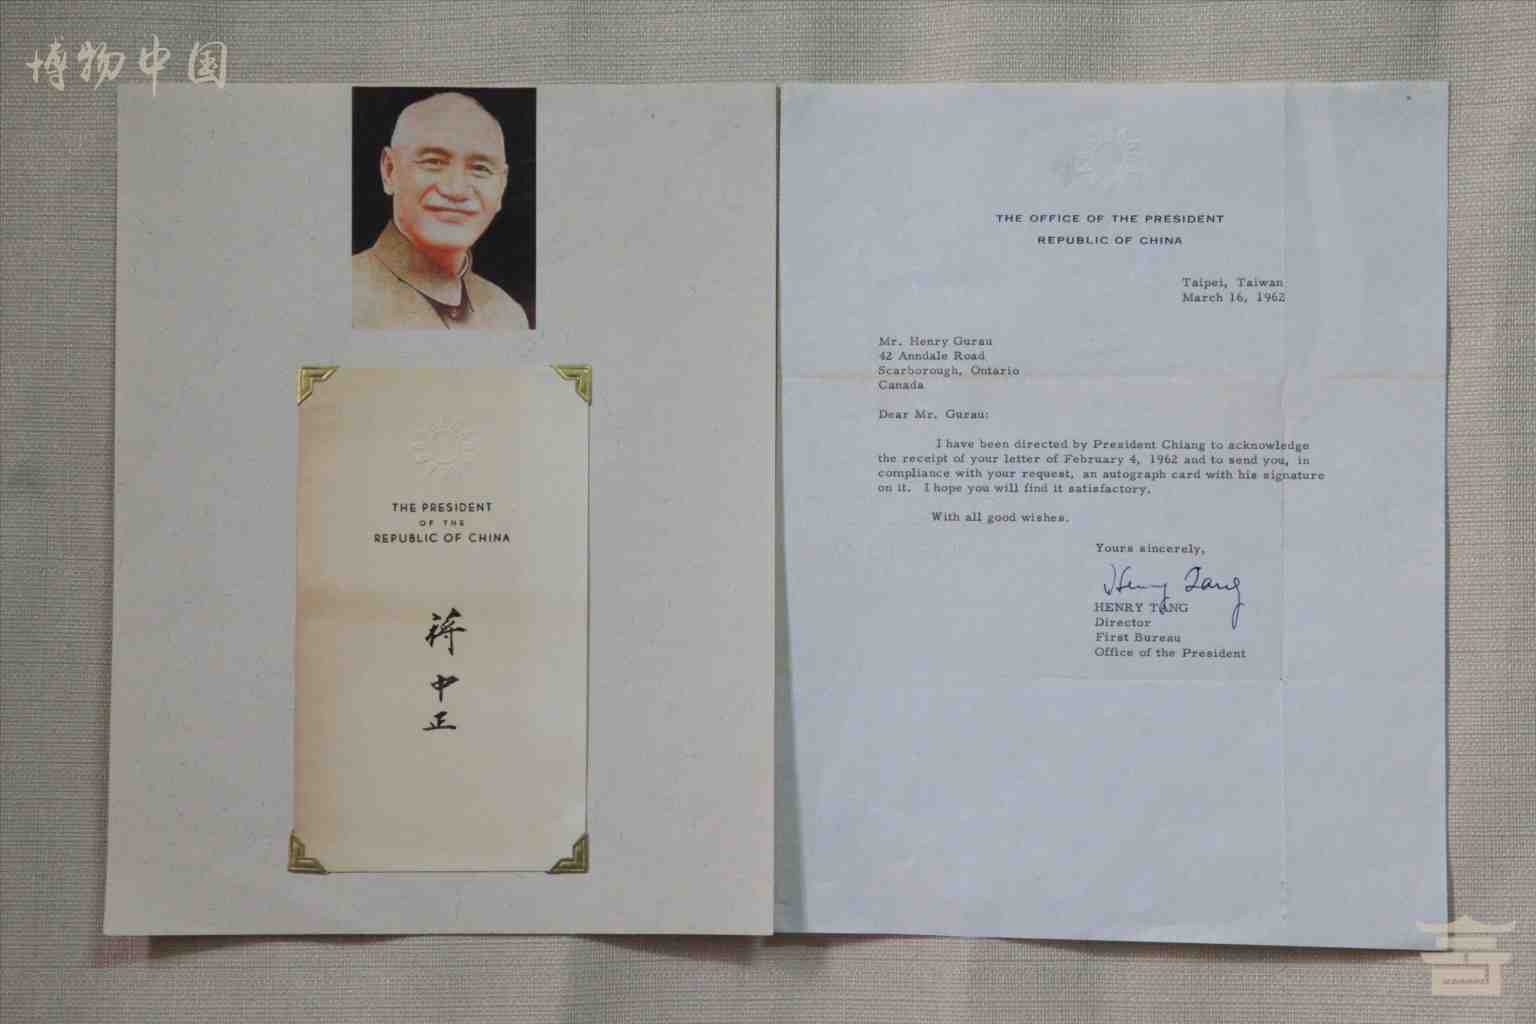 博物中国
THE PRESIDENT
OF THE
REPUBLIC OF CHINA
蒋
中
正
THE OFFICE OF THE PRESIDENT
REPUBLIC OF CHINA
Taipei, Taiwan
March 16, 1962
Mr. Henry Gurau
42 Anndale Road
Scarborough, Ontario
Canada
Dear Mr. Gurau:
I have been directed by President Chiang to acknowledge
the receipt of your letter of February 4, 1962 and to send you, in
compliance with your request, an autograph card with his signature
on it. I hope you will find it satisfactory.
With all good wishes.
Yours sincerely,
Henry Tang
HENRY TANG
Director
First Bureau
Office of the President